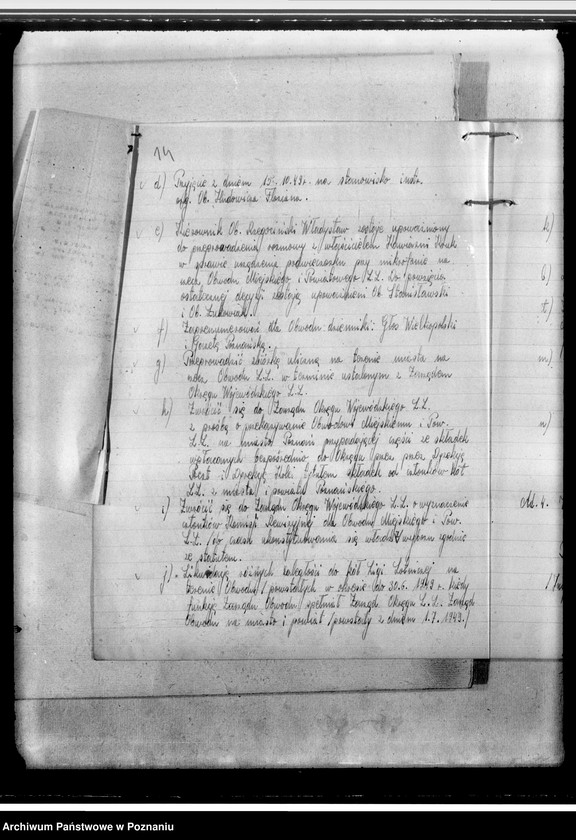 14
d) Przyjęcie z dniem 15.10.49 r. na stanowisko instr.
org. Ob. Hudowicza Floriana.
e) Kierownik Ob. Węgorzewski Władysław zostaje upoważniony
do przeprowadzenia rozmowy z właścicielem
w sprawie urządzenia podwieczorku przy mikrofonie na
rzecz Obwodu Miejskiego i Powiatowego L.L. Do powzięcia
ostatecznej decyzji zostają upoważnieni Ob. Stanisławski
i Ob. Łukowiak.
f) Zaprenumerować dla Obwodu dzienniki: Głos Wielkopolski
i Gazetę Poznańską.
g) Przeprowadzić zbiórkę uliczną na terenie miasta na
rzecz Obwodu L.L. w terminie ustalonym z Zarządem
Okręgu Wojewódzkiego L.L.
h) Zwrócić się do Zarządu Okręgu Wojewódzkiego L.L.
z prośbą o przekazywanie Obwodowi Miejskiemu i Pow.
L.L. na miasto Poznań przypadającej części ze składek
wpłacanych bezpośrednio do Okręgu przez Dyrekcję
Poczt i Dyrekcję Kolei tytułem składek od członków Kół
L.L. z miasta i powiatu Poznańskiego.
i) Zwrócić się do Zarządu Okręgu Wojewódzkiego L.L. o wyznaczenie
członków Komisji Rewizyjnej dla Obwodu Miejskiego i Pow.
L.L. po czasie ukonstytuowania się władz wyższych zgodnie
ze statutem.
j) Likwidację zaległości do Kół Ligi Lotniczej na
terenie Obwodu powstałych w okresie do 30.6.1949 r. kiedy
funkcję Zarządu Obwodu spełniał Zarząd Okręgu L.L. Zarząd
Obwodu na miasto i powiat /powstały z dniem 1.7.1949./
k)
l)
m)
n)
Ad. 4.
Archiwum Państwowe w Poznaniu